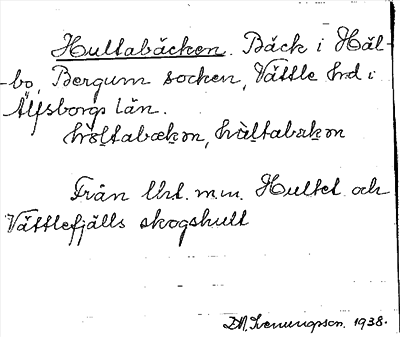 Hultabäcken. Bäck i Häl-
-bo, Bergum socken, Vättle hd i
Älfsborgs län.
hòltabækən, hùltabækən
Från Uht. m.m. Hultet och
Vättlefjälls skogshult
1938.